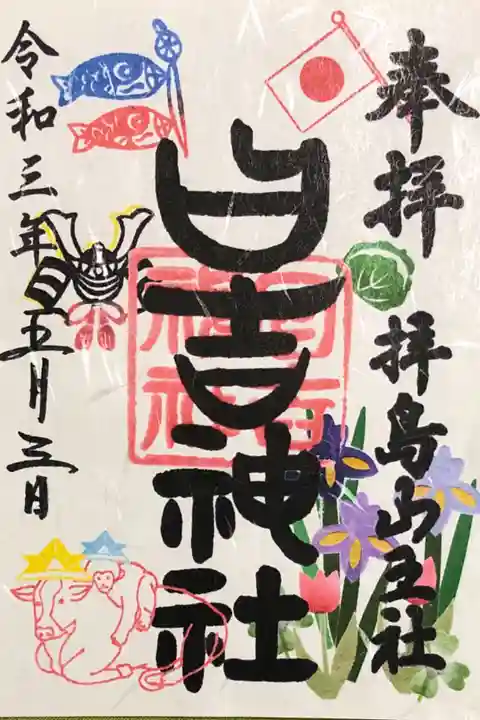 奉拝
拝島山王社
日吉神社
日吉
神社
令和三年五月三日